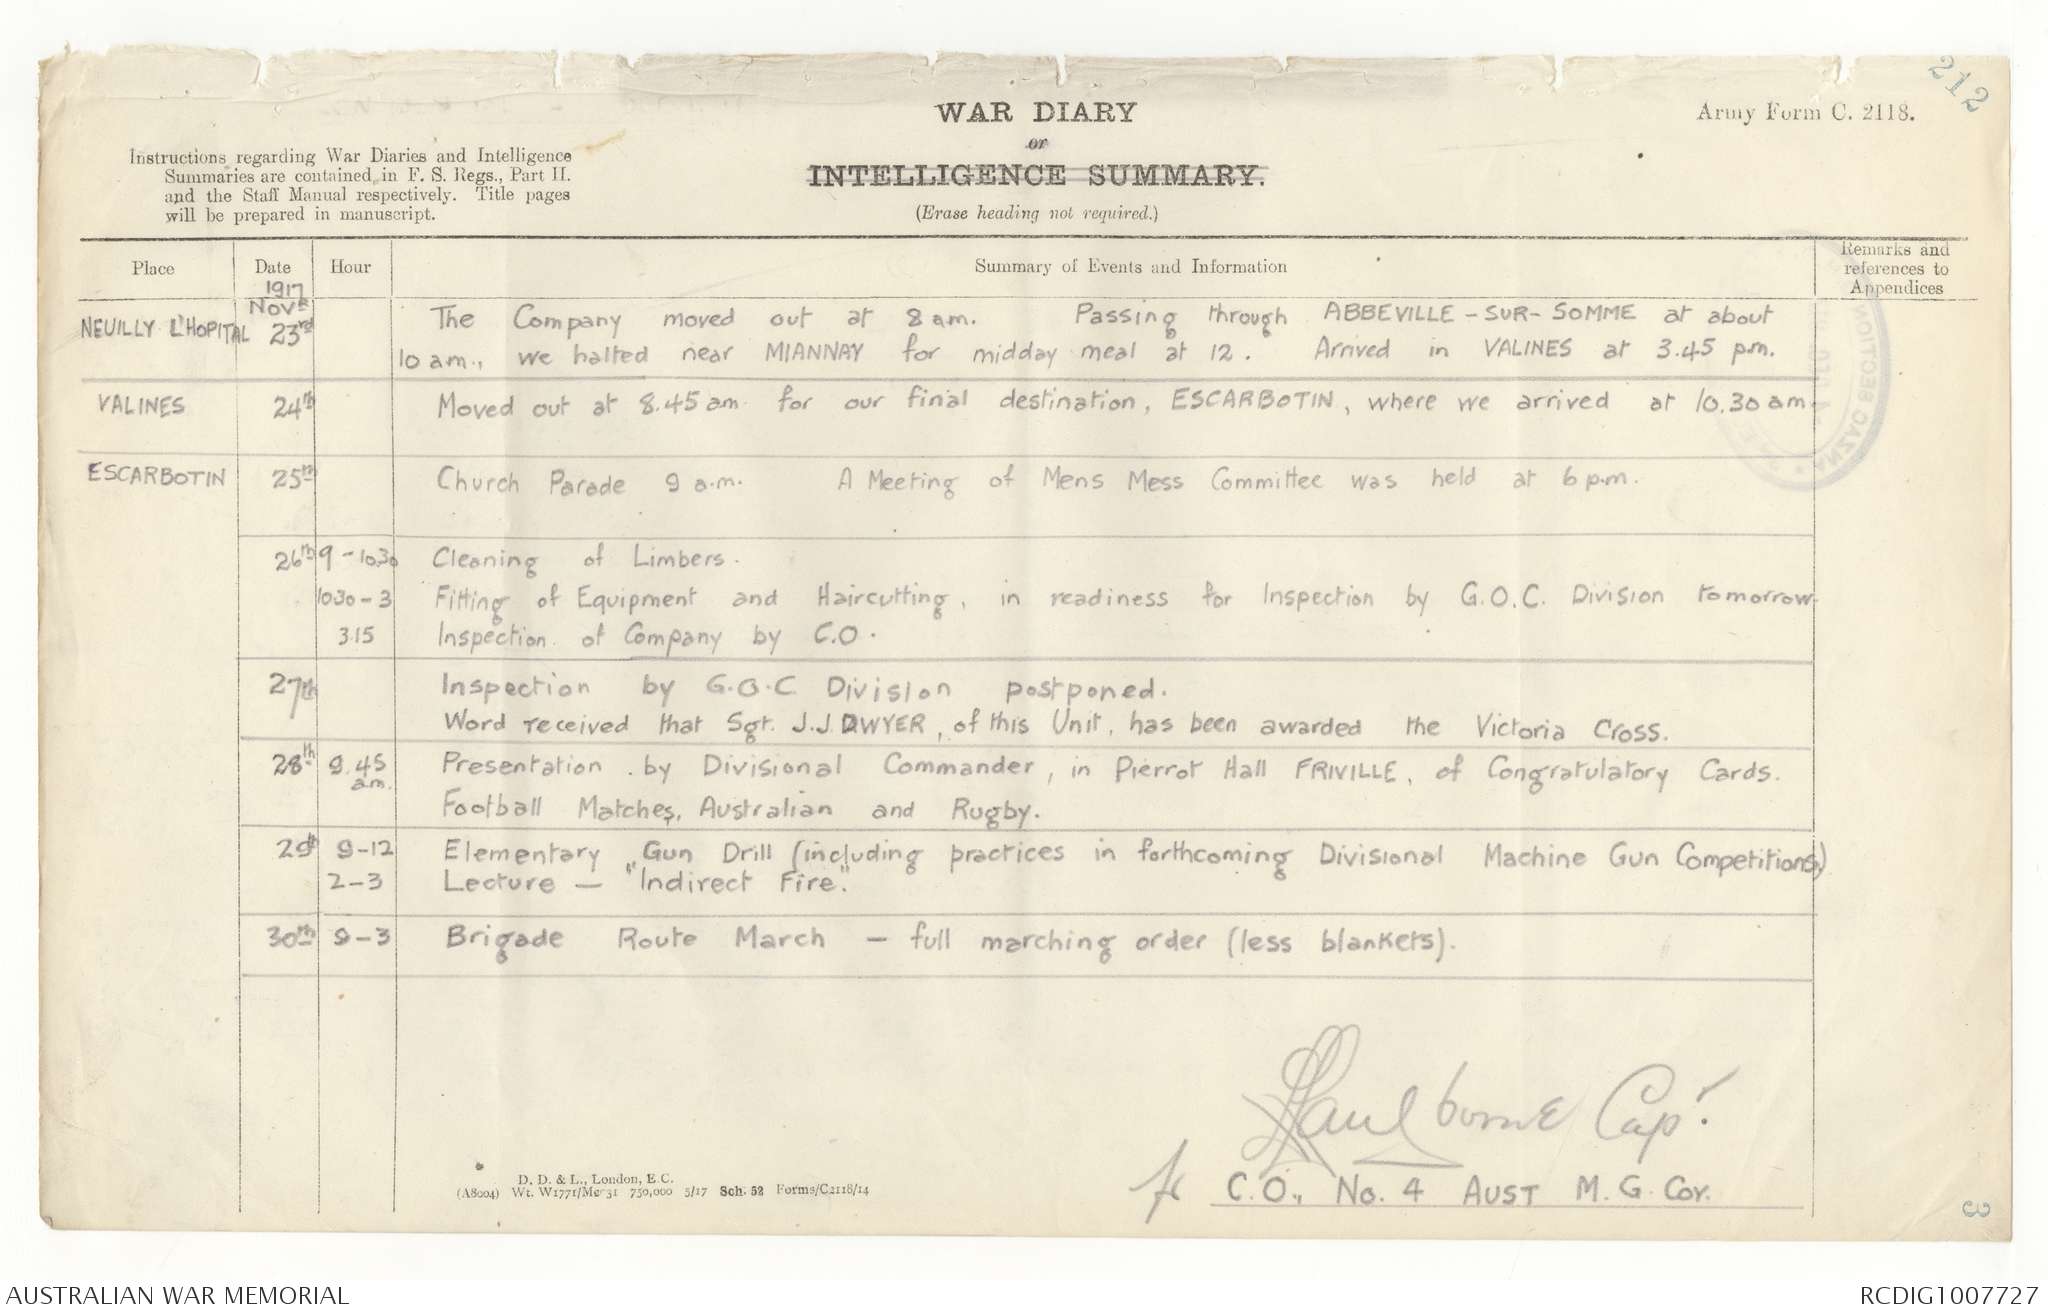 212
WAR DIARY
or
INTELLIGENCE SUMMARY.
(Erase heading not required.)
Army Form C. 2118.
Instructions regarding War Diaries and Intelligence
Summaries are contained in F. S. Regs., Part II.
and the Staff Manual respectively. Title pages
will be prepared in manuscript.
Place Date Hour Summary of Events and Information Remarks and references to Appendices
1917
Novr
NEUILLY L'HOPITAL 23rd The Company moved out at 8 am. Passing through ABBEVILLE-SUR-SOMME at about
10 am., we halted near MIANNAY for midday meal at 12. Arrived in VALINES at 3.45 pm.
VALINES 24th Moved out at 8.45 am. for our final destination, ESCARBOTIN, where we arrived at 10.30 am.
ESCARBOTIN 25th Church Parade 9 a.m. A Meeting of Mens Mess Committee was held at 6 p.m.
26th 9-10.30 Cleaning of Limbers.
1030-3 Fitting of Equipment and Haircutting, in readiness for Inspection by G.O.C. Division tomorrow.
3.15 Inspection of Company by C.O.
27th Inspection by G.O.C. Division postponed.
Word received that Sgt. J.J DWYER, of this Unit, has been awarded the Victoria Cross.
28th 9.45 am. Presentation by Divisional Commander, in Pierrot Hall FRIVILLE, of Congratulatory Cards.
Football Matches, Australian and Rugby.
29th 9-12 Elementary Gun Drill (including practices in forthcoming Divisional Machine Gun Competitions)
2-3 Lecture - "Indirect Fire."
30th 9-3 Brigade Route March - full marching order (less blankets).
Capt.
fr C.O., No. 4 AUST M. G. Coy.
D. D. & L., London, E.C.
(A8004) Wt. W1771/M2 31 750,000 5/17 Sch. 52 Forms/C2118/14
3
ANZAC SECTION
AUSTRALIAN WAR MEMORIAL
RCDIG1007727